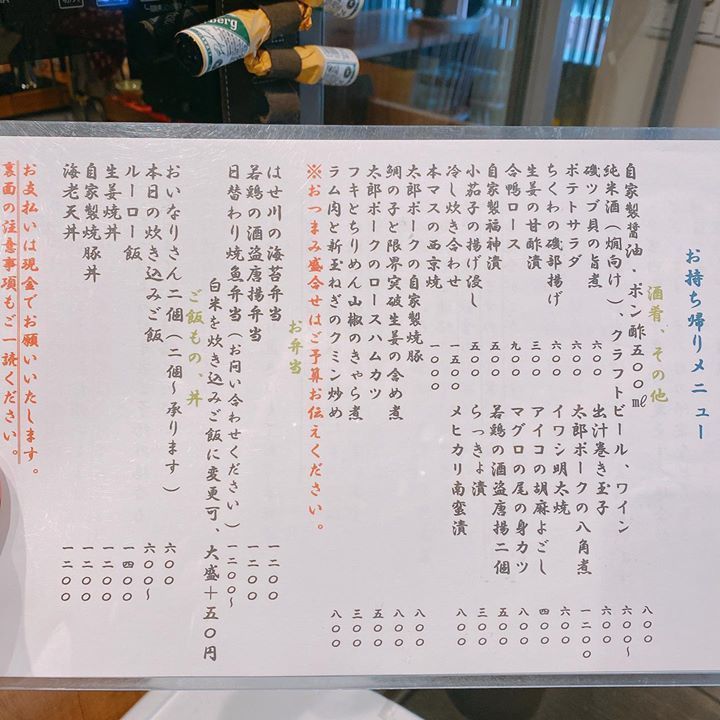 お持ち帰りメニュー
酒肴、その他
自家製醤油・ポン酢五〇〇㎖ 八〇〇
純米酒(燗向け)、クラフトビール、ワイン 六〇〇〜
磯ツブ貝の旨煮 六〇〇 出汁巻き玉子 六〇〇
ポテトサラダ 六〇〇 太郎ポークの八角煮 一二〇〇
ちくわの磯部揚げ 五〇〇 イワシ明太焼 六〇〇
生姜の甘酢漬 三〇〇 アイコの胡麻よごし 四〇〇
合鴨ロース 九〇〇 マグロの尾の身カツ 八〇〇
自家製福神漬 五〇〇 若鶏の酒盗唐揚二個 五〇〇
小茄子の揚げ浸し 五〇〇 らっきょ漬 三〇〇
冷し炊き合わせ 一五〇〇 メヒカリ南蛮漬 八〇〇
本マスの西京焼 一〇〇〇
太郎ポークの自家製焼豚 八〇〇
鯛の子と限界突破生姜の含め煮 八〇〇
太郎ポークのロースハムカツ 五〇〇
フキとちりめん山椒のきゃら煮 三〇〇
ラム肉と新玉ねぎのクミン炒め 八〇〇
※おつまみ盛合せはご予算お伝えください。
お弁当
はせ川の海苔弁当 一二〇〇
若鶏の酒盗唐揚弁当 一二〇〇
日替わり焼魚弁当(お問い合わせください) 一二〇〇〜
白米を炊き込みご飯に変更可、大盛+五〇円
ご飯もの、丼
おいなりさん二個(二個〜承ります) 六〇〇
本日の炊き込みご飯 六〇〇〜
ルーロー飯 一四〇〇
生姜焼丼 一二〇〇
自家製焼豚丼 一二〇〇
海老天丼 一二〇〇
お支払いは現金でお願いいたします。
裏面の注意事項もご一読ください。